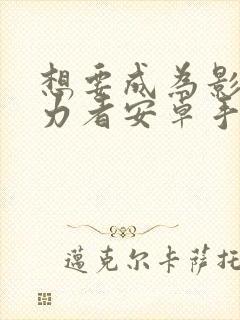 想要成为影
力者安卓手
邁克尔卡萨托